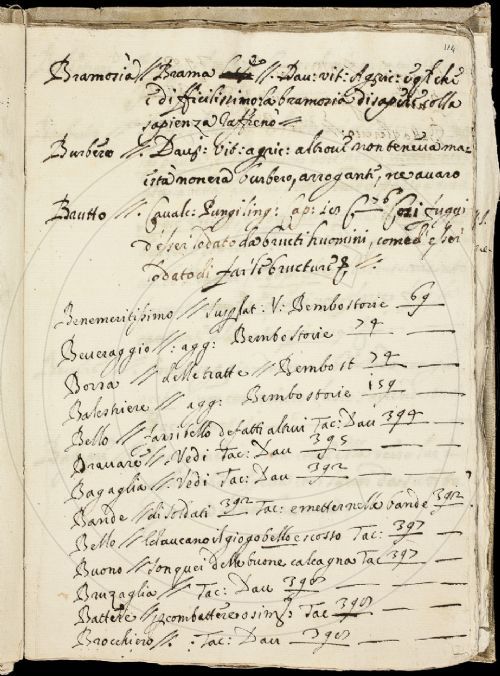 114
Bramosia // Brama // . Dav: vit: Agric: egl'che
è difficilissimo: la bramosia di sapere colla
sapienza l'affrenò //
Burbero // . Dav: Vit: agric: altrove non teneva ma
està non era burbero, arrogante, ne avaro
Brutto // . Cavalc: Pungiling: cap: Così fuggi
d'esser lodato da brutti huomini, come d'esser
lodato di far le brutture //.
Benemeritissimo // V: Bembo storie 69
Beveraggio // : agg: Bembo storie 74
Borra // delle tratte // Bembo st 74
Balestriere // agg: Bembo storie 159
Bello // farsi bello de fatti altrui Tac: Dav 394
Bravaro // Vedi Tac: Dav 395
Bagaglia // Vedi Tac: Dav 392
Bande // di soldati 392 Tac: e metter nelle bande 392
Bello // levaucano il giogo bello e scosso Tac: 397
Buono // delle buone calcagna Tac 397
Bruzaglia // Tac: Dav 398
Battere // combattere Tac 398
Brocchiero //. : Tac: Dav 398